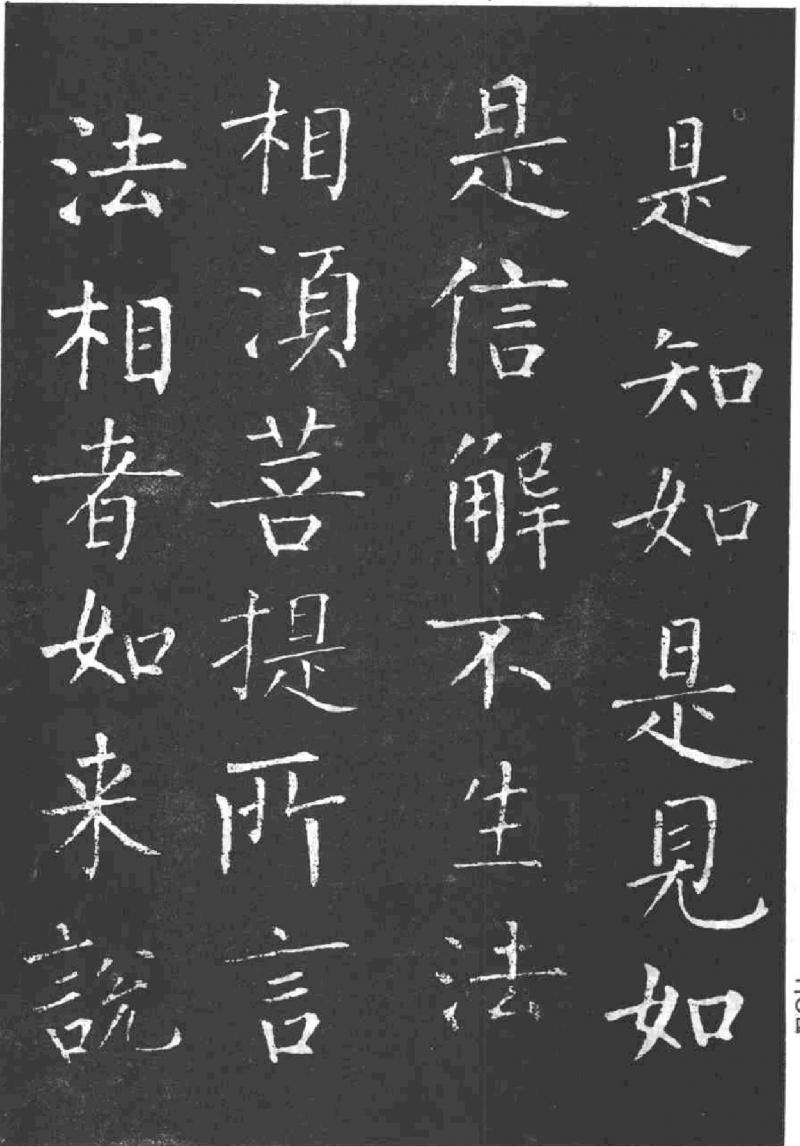 是知如是見如
是信解不生法
相湏菩提所言
法相者如来說